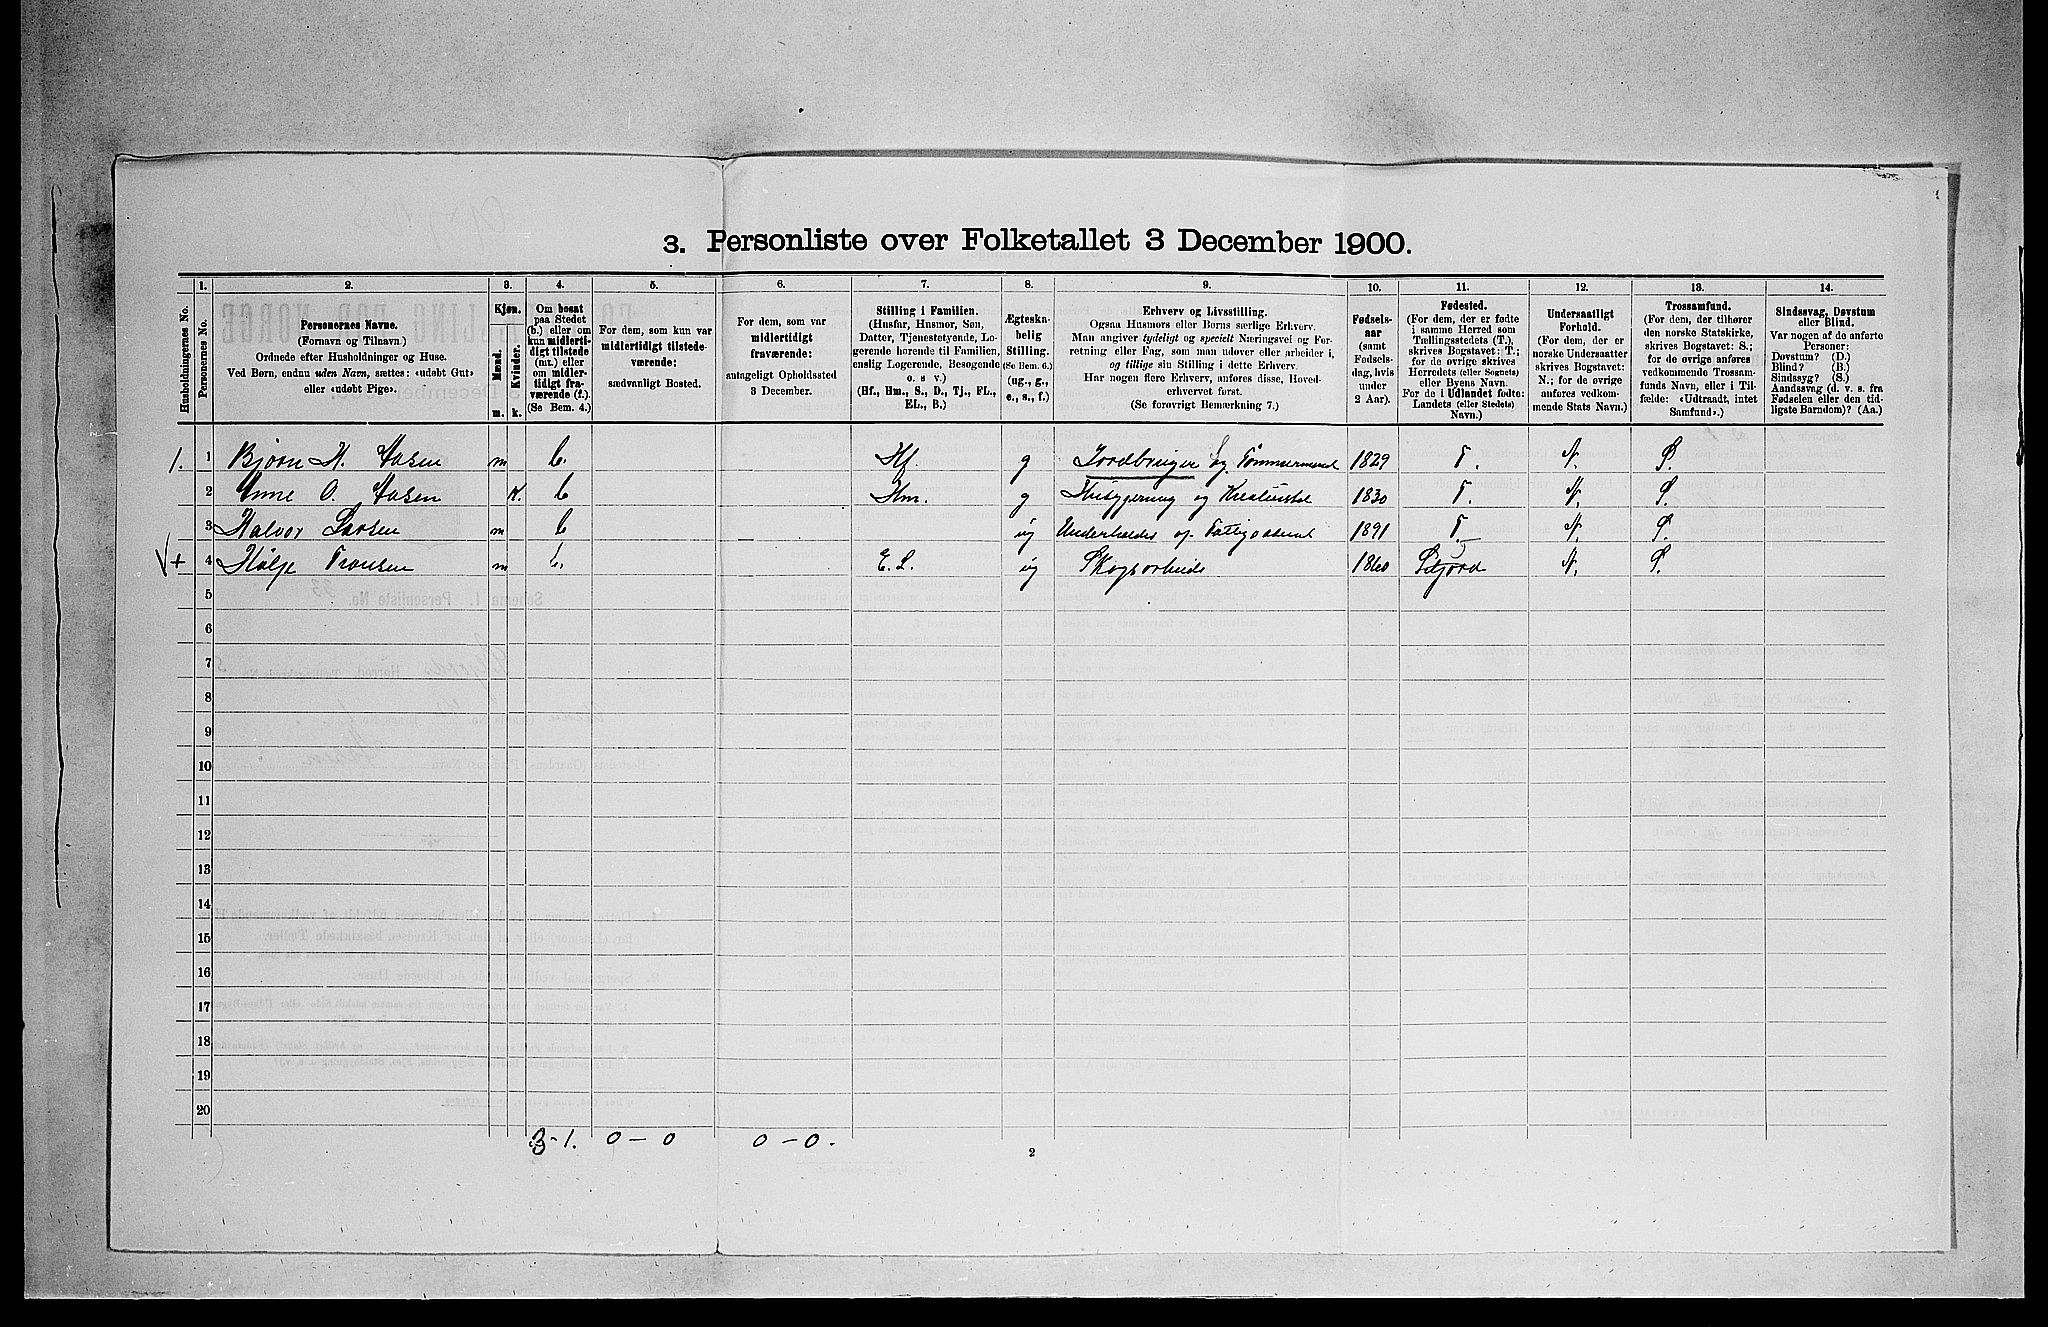 3. Personliste over Folketallet 3 December 1900.
Husholdningernes No.
1.
Personernes No.
2.
Personernes Navne.
(Fornavn og Tilnavn.)
Ordnede efter Husholdninger og Huse.
Ved Børn, endnu uden Navn, sættes: «udøbt Gut»
eller «udøbt Pige».
3.
Kjøn.
Mænd.
Kvinder.
m.
k.
4.
Om bosat
paa Stedet
(b.) eller om
kun midlerti-
digt tilstede
(mt.) eller
om midler-
tidigt fra-
værende (f.).
(Se Bem. 4.)
5.
For dem, som kun var
midlertidigt tilstede-
værende:
sædvanligt Bosted.
6.
For dem, som var
midlertidigt
fraværende:
antageligt Opholdssted
3 December.
7.
Stilling i Familien.
(Husfar, Husmor, Søn,
Datter, Tjenestetyende, Lo-
gerende hørende til Familien,
enslig Logerende, Besøgende
o. s v.)
(Hf., Hm., S., D., Tj., FL.,
EL., B.)
8.
Ægteska-
belig
Stilling.
(Se Bem. 6.)
(ug., g.,
e., s., f.)
9.
Erhverv og Livsstilling.
Ogsaa Husmors eller Børns særlige Erhverv.
Man angiver tydeligt og specielt Næringsvei og For-
retning eller Fag, som man udøver eller arbeider i,
og tillige sin Stilling i dette Erhverv.
Har nogen flere Erhverv, anføres disse, Hoved-
erhvervet først.
(Se forøvrigt Bemærkning 7.)
10.
Fødsels-
aar
(samt
Fødsels-
dag, hvis
under
2 Aar).
11.
Fødested.
(For dem, der er fødte
i samme Herred som
Tællingsstedets (T.),
skrives Bogstavet: T.;
for de øvrige skrives
Herredets (eller Sognets)
eller Byens Navn.
For de i Udlandet fødte:
Landets (eller Stedets)
Navn.)
12.
Undersaatligt
Forhold.
(For dem, der er
norske Undersaatter
skrives Bogstavet:
N.; for de øvrige
anføres vedkom-
mende Stats Navn.)
13.
Trossamfund.
(For dem, der tilhører
den norske Statskirke,
skrives Bogstavet: S.;
for de øvrige anføres
vedkommende Trossam-
funds Navn, eller i Til-
fælde: «Udtraadt, intet
Samfund».)
14.
Sindssvag, Døvstum
eller Blind.
Var nogen af de anførte
Personer:
Døvstum? (D.)
Blind? (B.)
Sindssyg? (S.)
Aandssvag (d. v. s. fra
Fødselen eller den tid-
ligste Barndom)? (Aa.)
1. 1 Bjørn H. Aasen m b. Hf. g Jordbruger og Tømmermand 1829 T. N. S.
2 Anne O. Aasen k. b Hm. g Husgjerning og Kreaturstel 1830 T. N. S.
3 Halvor Larsen m b ug Underholdes af 1891 T. N. S.
+ 4 Hølje Transen m b. E. L. ug Skogsarbeide 1860 N. S.
5
6
7
8
9
10
11
12
13
14
15
16
17
18
19
20
3-1. 0-0 0-0.
2